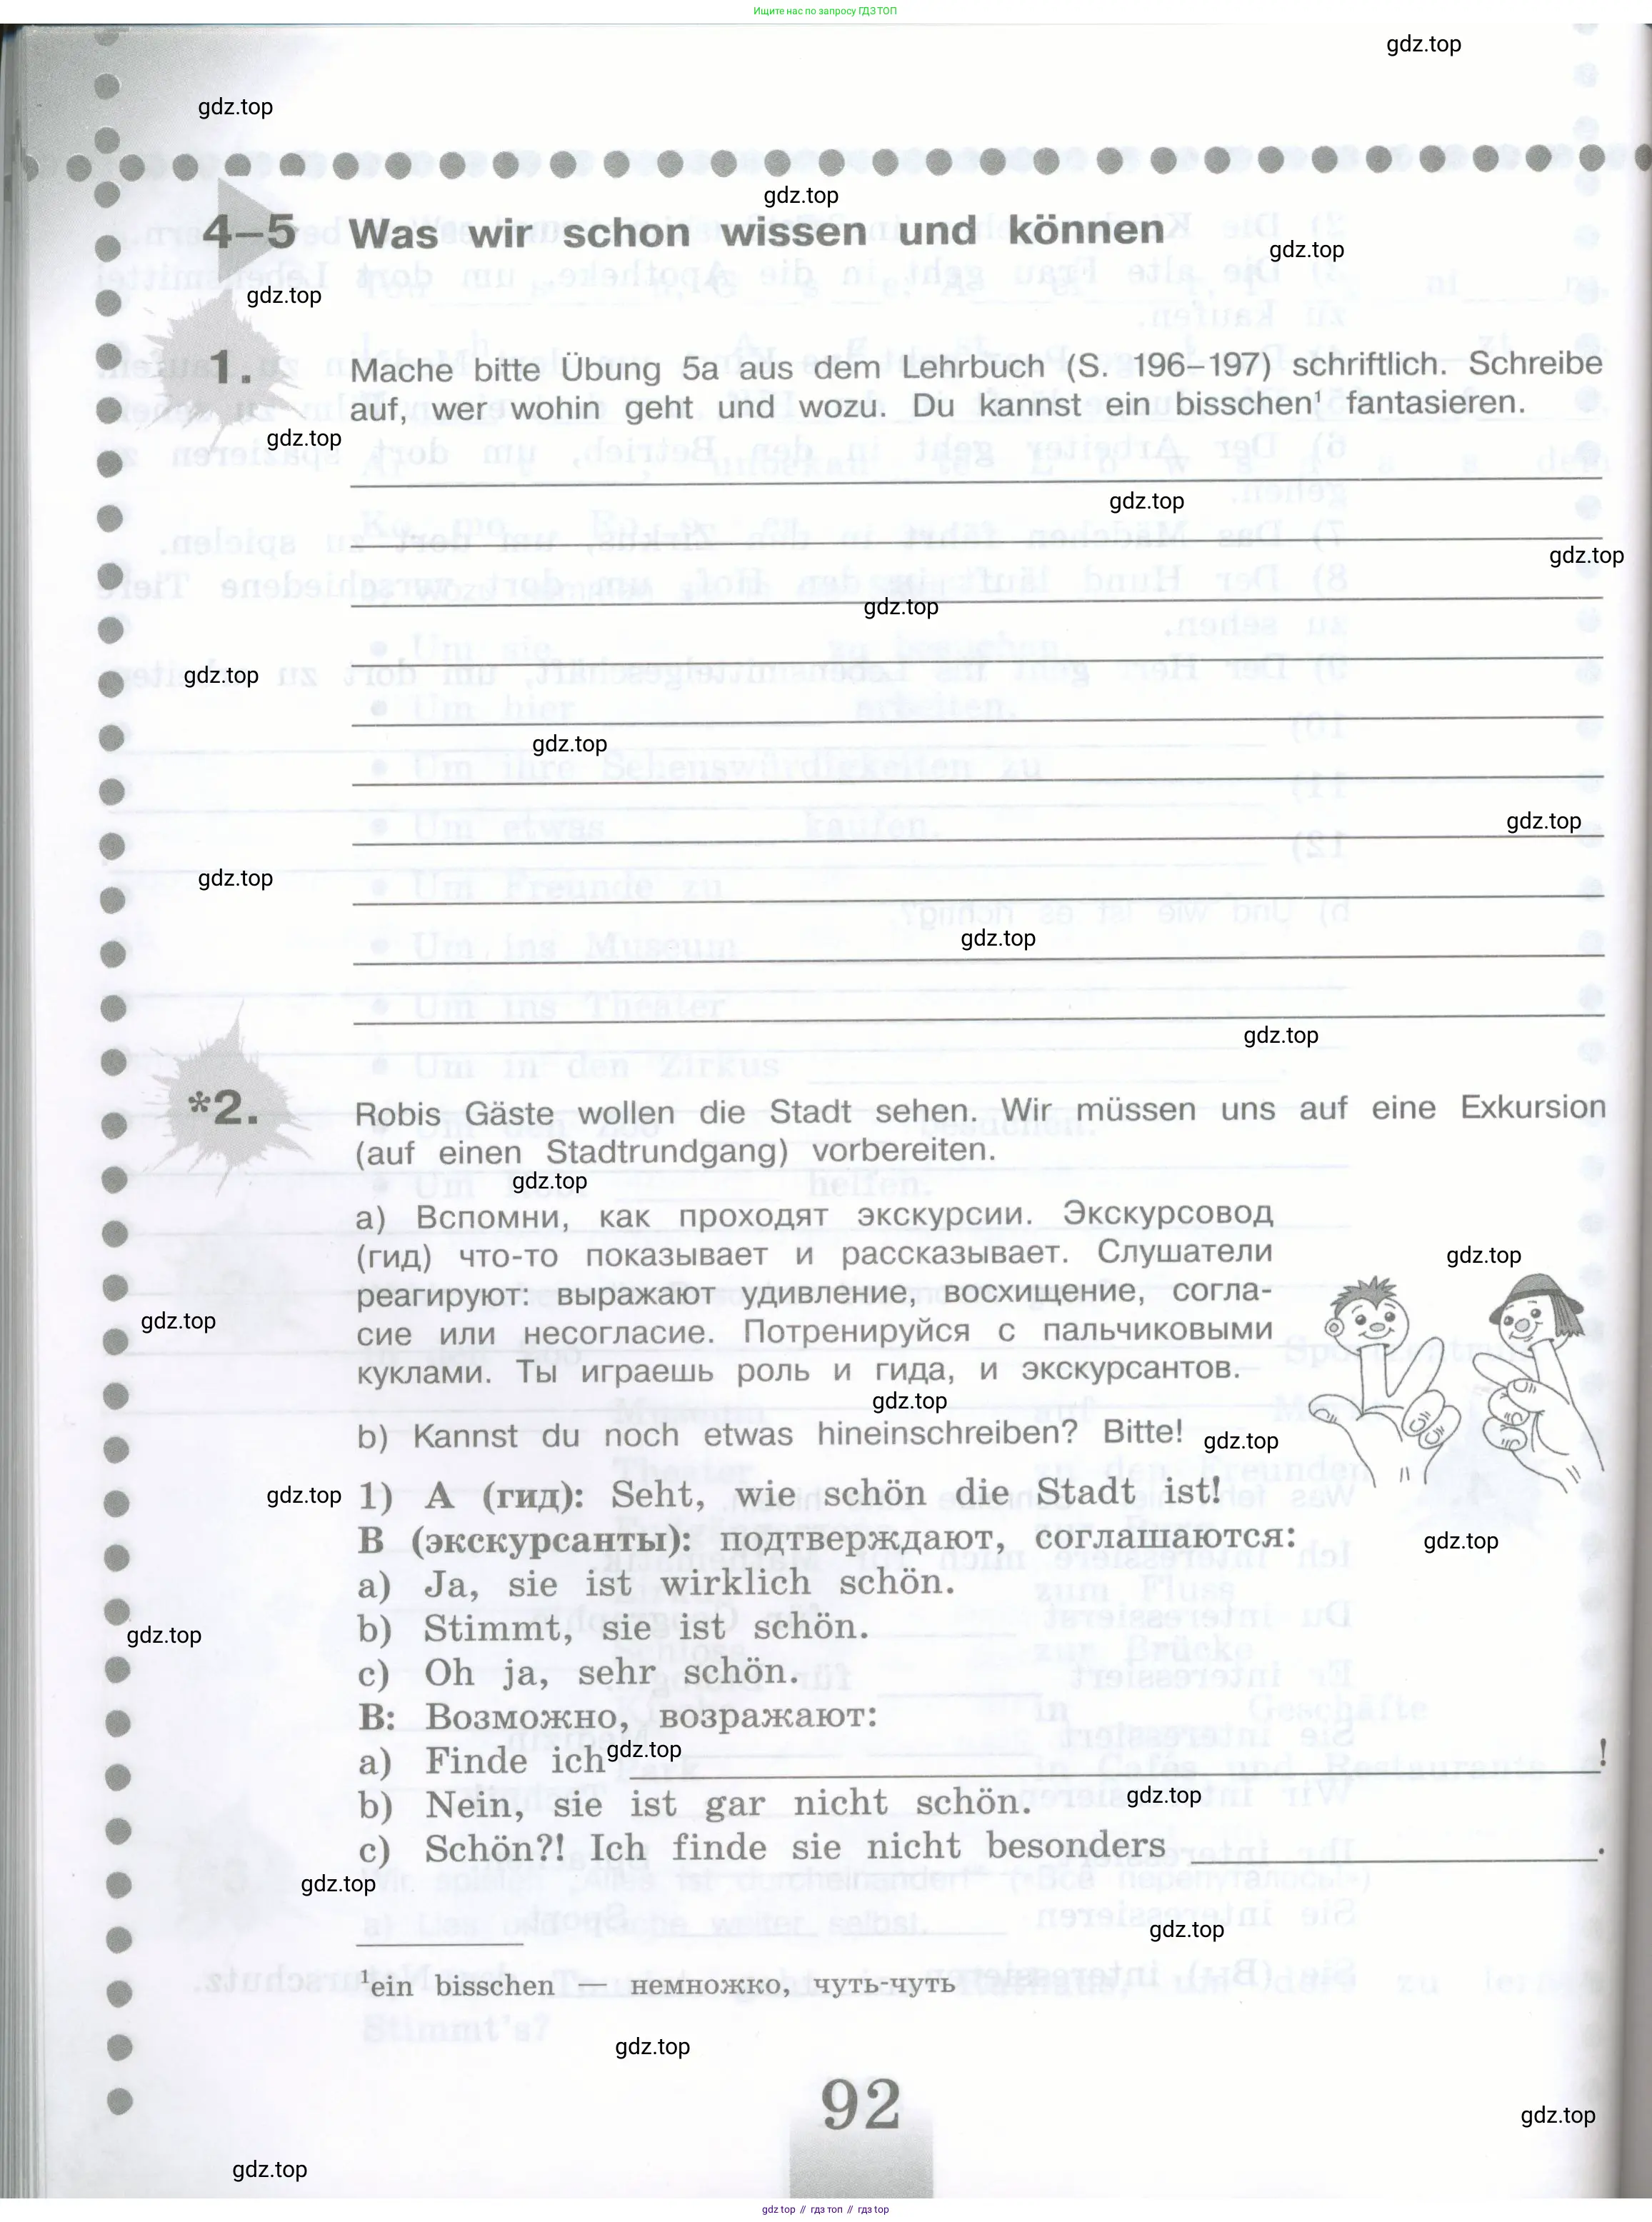 Ищите нас по запросу ГДЗ ТОП
gdz.top
gdz.top
gdz.top
4–5 Was wir schon wissen und können
gdz.top
gdz.top
1. Mache bitte Übung 5a aus dem Lehrbuch (S. 196–197) schriftlich. Schreibe
auf, wer wohin geht und wozu. Du kannst ein bisschen¹ fantasieren.
gdz.top
gdz.top
gdz.top
gdz.top
gdz.top
gdz.top
gdz.top
gdz.top
gdz.top
gdz.top
*2. Robis Gäste wollen die Stadt sehen. Wir müssen uns auf eine Exkursion
(auf einen Stadtrundgang) vorbereiten.
gdz.top
a) Вспомни, как проходят экскурсии. Экскурсовод
(гид) что-то показывает и рассказывает. Слушатели
gdz.top
реагируют: выражают удивление, восхищение, согла-
gdz.top
сие или несогласие. Потренируйся с пальчиковыми
куклами. Ты играешь роль и гида, и экскурсантов.
gdz.top
b) Kannst du noch etwas hineinschreiben? Bitte! gdz.top
gdz.top 1) А (гид): Seht, wie schön die Stadt ist!
В (экскурсанты): подтверждают, соглашаются: gdz.top
a) Ja, sie ist wirklich schön.
gdz.top b) Stimmt, sie ist schön.
c) Oh ja, sehr schön.
В: Возможно, возражают:
a) Finde ich gdz.top !
b) Nein, sie ist gar nicht schön. gdz.top
c) Schön?! Ich finde sie nicht besonders .
gdz.top
gdz.top
¹ein bisschen — немножко, чуть-чуть
gdz.top
92
gdz.top
gdz.top
gdz.top // гдз топ // гдз top